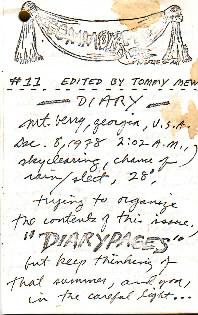 #11 EDITED BY TOMMY MEW
DIARY
mt. berry, georgia, U.S.A.
Dec. 8, 1978 2:02 A.M.,
sky clearing, chance of
rain/sleet, 28°
trying to organize
the contents of this issue,
"DIARYPAGES",
but keep thinking of
that summer, and you,
in the careful light...